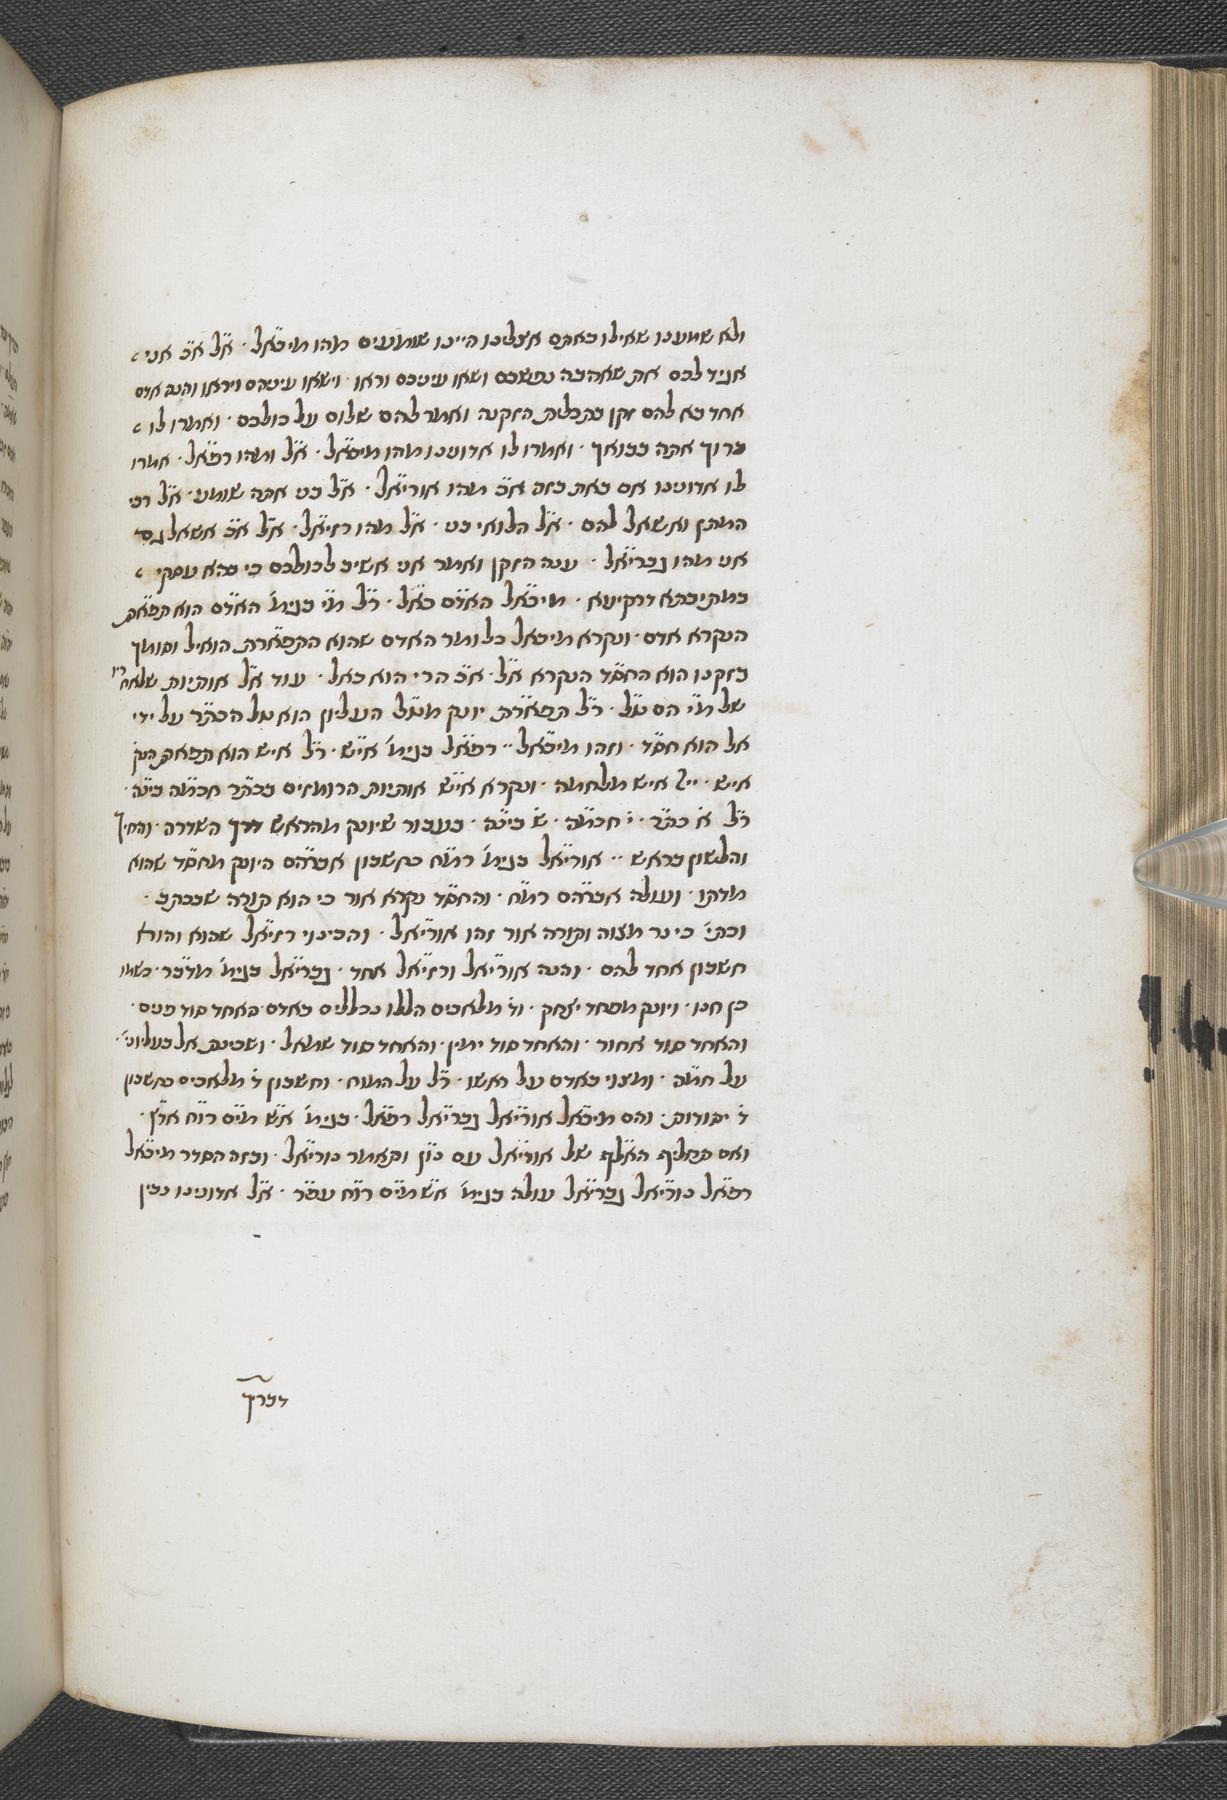 ולא שמענו שאילו באתם אצלינו היינו שומעים מהו מיכאל · א״ל א״כ אני
אגיד לכם את שאהבה נפשכם ושאו עיניכם וראו · וישאו עיניהם ויראו והנה אדם
אחד בא להם זקן בתכלית הזקנה ואמר להם שלום על כולכם · ואמרו לו
ברוך אתה בבואך · ואמרו לו אדונינו מהו מיכאל · א״ל ומהו רפאל · אמרו
לו אדונינו אם באת בזה א״כ מהו אוריאל · א״ל בני אתה שומע · א״ל רבי
המתן ואשאל להם · א״ל הלואי בני · א״ל מהו רזיאל · א״ל א״כ אשאל גם
אני מהו גבריאל · ענה הזקן ואמר אני אשיב לכולכם כי בהא עסקי
במתיבתא דרקיעא · מיכאל האדם כאל · ר״ל מ״י בגימ׳ האדם הוא תפארת
הנקרא אדם · ונקרא מיכאל כלומר האדם שהוא התפארת הואיל ותומך
בזקנו הוא החסד הנקרא אל · א״כ הרי הוא כאל · עוד א״ל אותיות שלאחריו
של מ״י הם טל · ר״ל תפארת יונק מטל העליון הוא טל הכתר על ידי
אל הוא חסד · וזהו מיכאל ·· רפאל בגימ׳ איש · ר״ל איש הוא תפארת הנק׳
איש · ייי איש מלחמה · ונקרא איש אותיות הרומזים בכתר חכמה בינה ·
ר״ל א׳ כתר · י׳ חכמה · ש׳ בינה · בעבור שיונק מהראש דרך השדרה · והחיך
והלשון בראש ·· אוריאל בגימ׳ רמ״ח כחשבון אברהם היונק מחסד שהוא
מדתו · ועולה אברהם רמ״ח · והחסד נקרא אור כי הוא תורה שבכתב ·
וכת׳ כי נר מצוה ותורה אור וזהו אוריאל · והכינוי רזיאל שהוא והו״א
חשבון אחד להם · והנה אוריאל ורזיאל אחד · גבריאל בגימ׳ מדבר · כשמו
כן חנו · ויונק מפחד יצחק · וד׳ מלאכים הללו נכללים באדם · האחד סוד פנים ·
והאחד סוד אחור · והאחד סוד ימין · והאחד סוד שמאל · ושכינת אל בעליוני׳ ·
על חמה · ומצוי באדם על ראשו · ר״ל על המוח · וחשבון ד׳ מלאכים כחשבון
ד׳ יסודות · והם מיכאל אוריאל גבריאל רפאל · בגימ׳ אש מים רוח ארץ ·
ואם תחליף האלף של אוריאל עם נון ותאמר נוריאל · ובזה הסדר מיכאל
רפאל נוריאל גבריאל עולה בגימ׳ אש מים רוח עפר · א״ל אדונינו נכין
דבריך